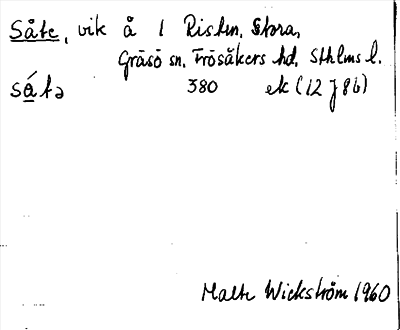 Såte, vik å 1 Risten, Stora,
Gräsö sn. Frösåkers hd. Sthlms l.
såtə 380 ek (12 J 8 b)
Malte Wickström 1960